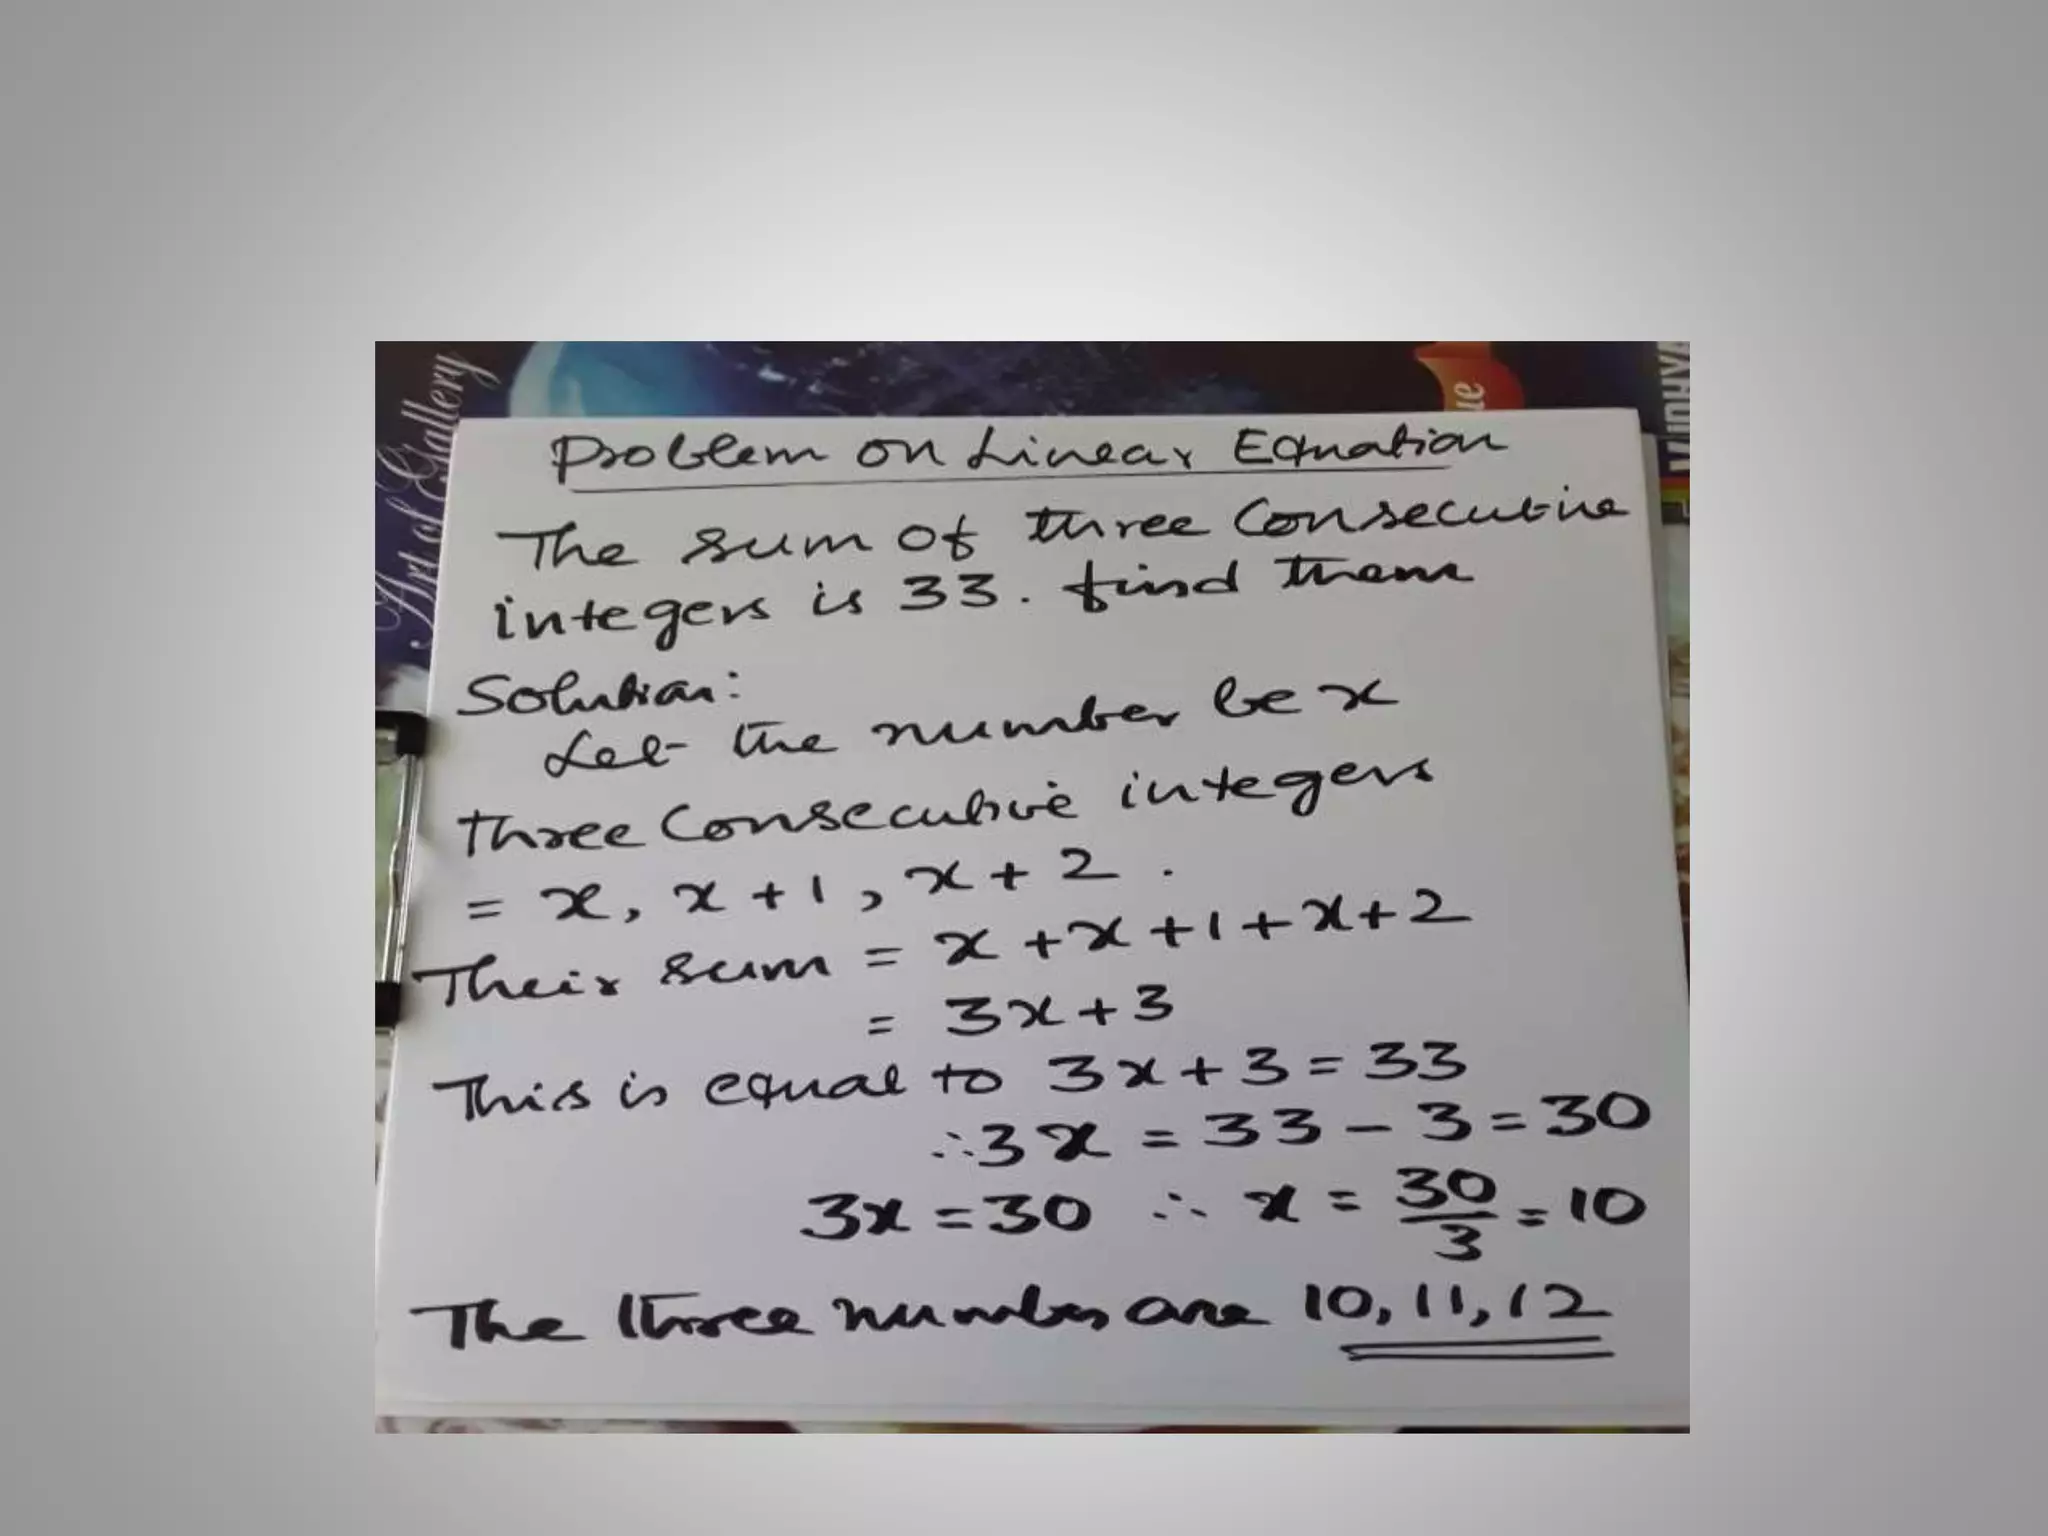 Art of Gallery
ue
VIDHYA
Problem on Linear Equation
The sum of three Consecutive
integers is 33. find them
Solution:
Let the number be x
three Consecutive integers
= x, x + 1, x + 2.
Their sum = x + x + 1 + x + 2
= 3x + 3
This is equal to 3x + 3 = 33
∴ 3x = 33 - 3 = 30
3x = 30 ∴ x = 30/3 = 10
The three numbers are 10, 11, 12